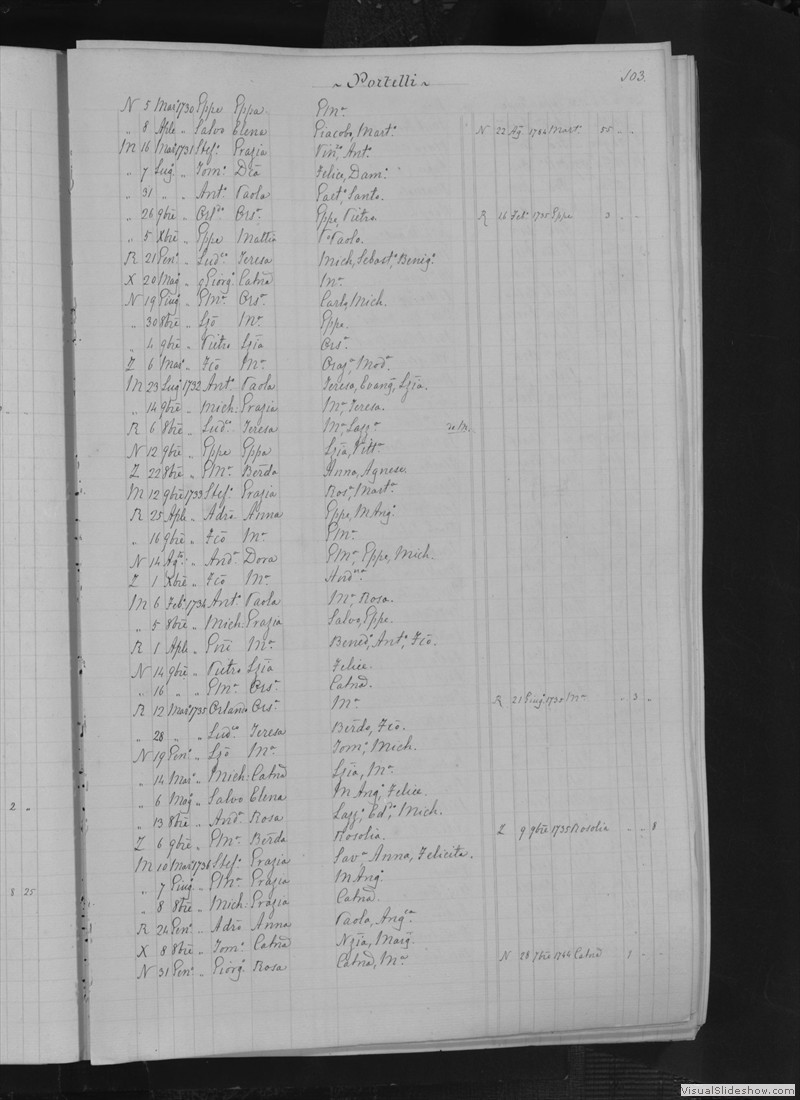 ~ Portelli ~ 103.
N 5 Mar.º 1730 Eppe Eppa Gmª.
„ 8 Aple „ Salvo Elena Giacobo, Martª. N 22 Agº. 1784 Martª. 55 - -
M 16 Mar.º 1731 Stefº. Grazia Vinª., Antº.
„ 7 Lugº. „ Tomº. Dīa Felice, Damº.
„ 31 „ „ Antº. Paola Gaetº, Santo.
„ 26 9bre „ Orsª. Eppe, Pietra R 16 Febº. 1735 Eppe 3 - -
„ 5 Xbre „ Eppe Mattia Pº Paolo.
R 21 Genº. „ Ludco. Teresa Mich, Sebastº, Benigº.
X 20 Magº. „ Giorgº. Catnā Mª.
N 19 Giugº. „ Gmª. Orsª. Carlo, Mich.
„ 30 8bre „ Lzō Mª. Eppe.
„ 4 9bre „ Pietro Lzīa Orsª.
Z 6 Marº. „ Fcō Mª. Grazª., Modª.
M 23 Lugº. 1732 Antº. Paola Teresa, Evang, Lzīa.
„ 14 9bre „ Mich: Grazia Mª, Teresa.
R 6 8bre „ Ludco. Teresa Mª, Lazzº.
N 12 9bre „ Eppe Eppa Lzīa, Vittª.
Z 22 8bre „ Gmª. Berda Anna, Agnese.
M 12 9bre 1733 Stefº. Grazia Rosª, Martª.
R 25 Aple „ Adrō Anna Eppe, M Angº.
„ 16 9bre „ Fcō Mª. Gmª.
N 14 Agº. „ Andª. Dora Gmª, Eppe, Mich.
Z 1 Xbre „ Fcō Mª. Andª.
M 6 Febº. 1734 Antº. Paola Mª, Rosa.
„ 5 8bre „ Mich: Grazia Salvo, Eppe.
R 1 Aple „ Mª. Benedº, Antº, Fcō.
N 14 9bre „ Pietro Lzīa Felice.
„ 16 „ „ Gmª. Orsª. Catnā.
R 12 Marº. 1735 Orlandº Orsª. Mª. R 21 Giugº. 1730 Mª. - 3 -
„ 28 „ „ Ludco. Teresa Berdo, Fcō.
N 19 Genº. „ Lzō Mª. Tomº, Mich.
„ 14 Marº. „ Mich: Catnā Lzīa, Mª.
„ 6 Magº. „ Salvo Elena M Angº, Felice.
„ 13 8bre „ Andª. Rosa Lazzº, Edº, Mich.
Z 6 9bre „ Gmª. Berda Rosolia. Z 9 9bre 1735 Rosolia - - 8
M 10 Marº. 1736 Stefº. Grazia Savª, Anna, Felicita.
„ 7 Giugº. „ Gmª. Grazia M Angº.
„ 8 8bre „ Mich: Grazia Catnā.
R 24 Genº. „ Adrō Anna Paola, Angca.
X 8 8bre „ Tomº. Catnā Nzīa, Marg.
N 31 Genº. „ Giorgº. Rosa Catnā, Mª. N 28 7bre 1764 Catnā 1 - -
2 „
8 25
VisualSlideshow.com